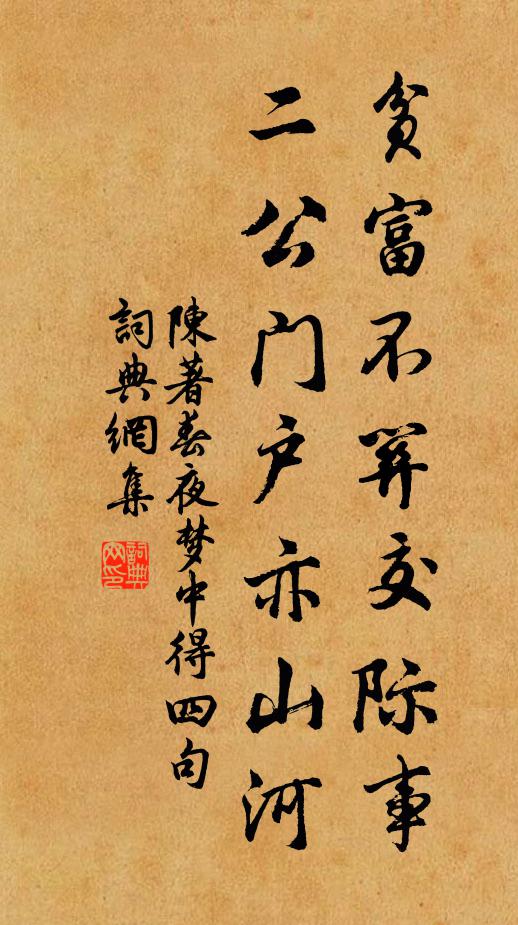 贫富不関交际事
二公门户亦山河
陳著春夜梦中得四句
詞典網集
詞典网印